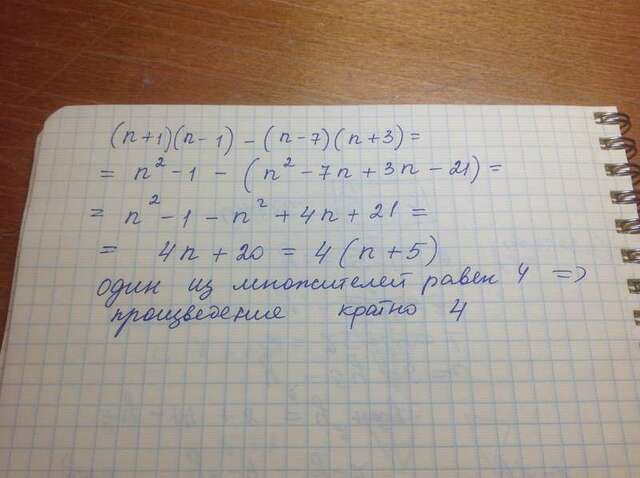 (n+1)(n-1) - (n-7)(n+3) =
= n² - 1 - (n² - 7n + 3n - 21) =
= n² - 1 - n² + 4n + 21 =
= 4n + 20 = 4(n+5)
один из множителей равен 4 =>
произведение кратно 4